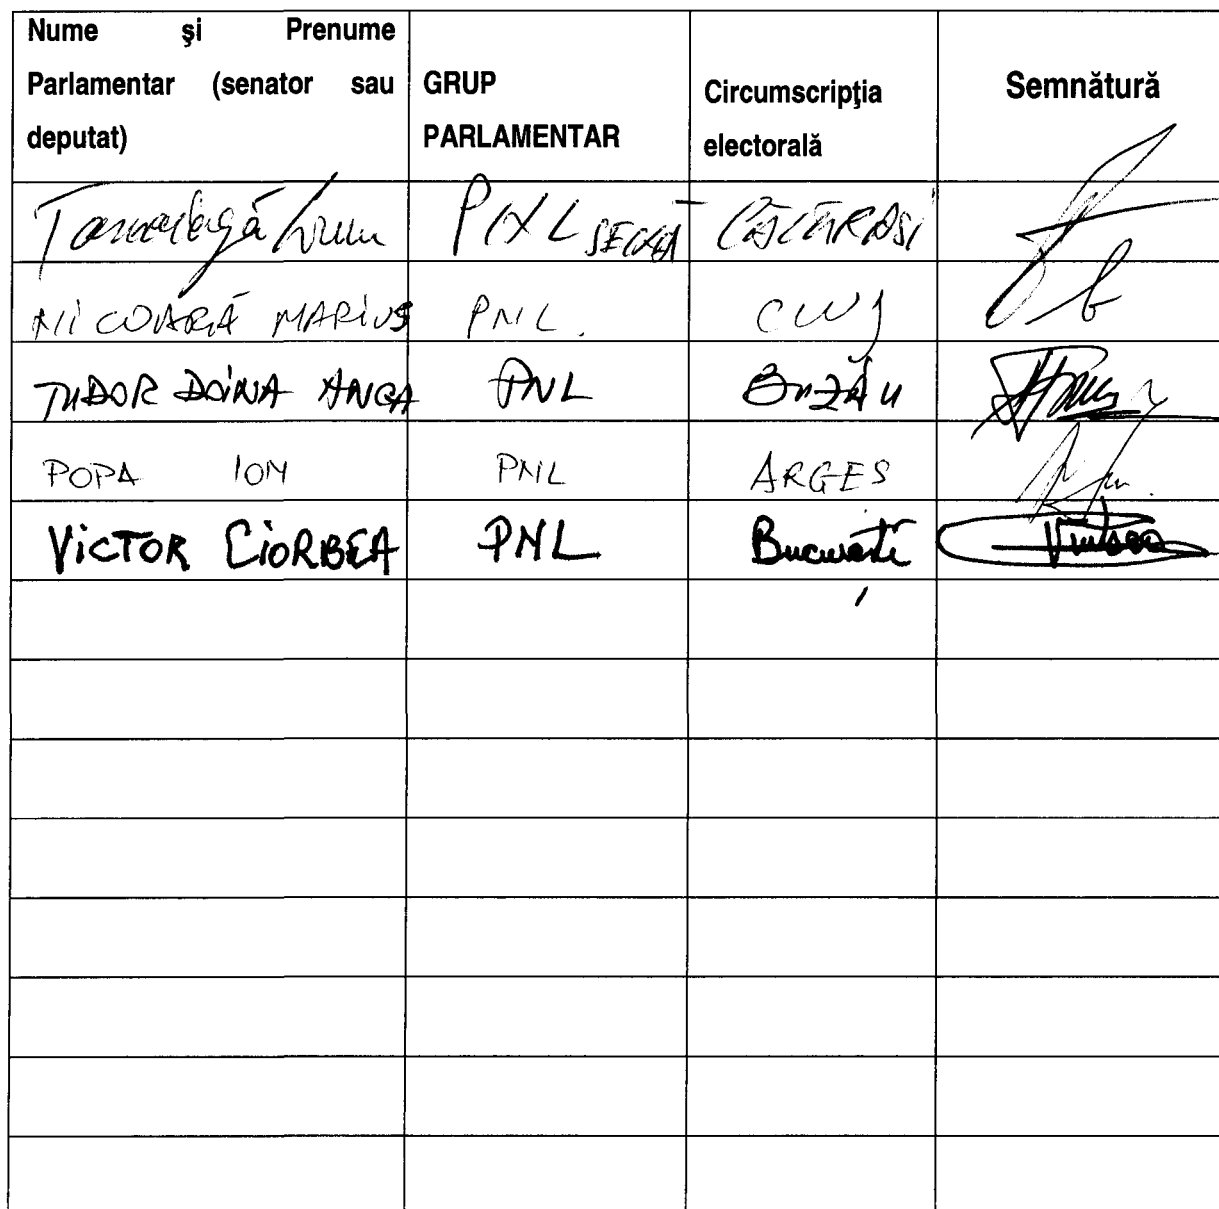 Nume şi Prenume
Parlamentar (senator sau
deputat)
GRUP
PARLAMENTAR
Circumscripţia
electorală
Semnătură
PNL CĂLĂRAȘI
NICOARĂ MARIUS PNL. CLUJ
TUDOR DOINA ANCA PNL BUZĂU
POPA ION PNL ARGES
VICTOR CIORBEA PNL București